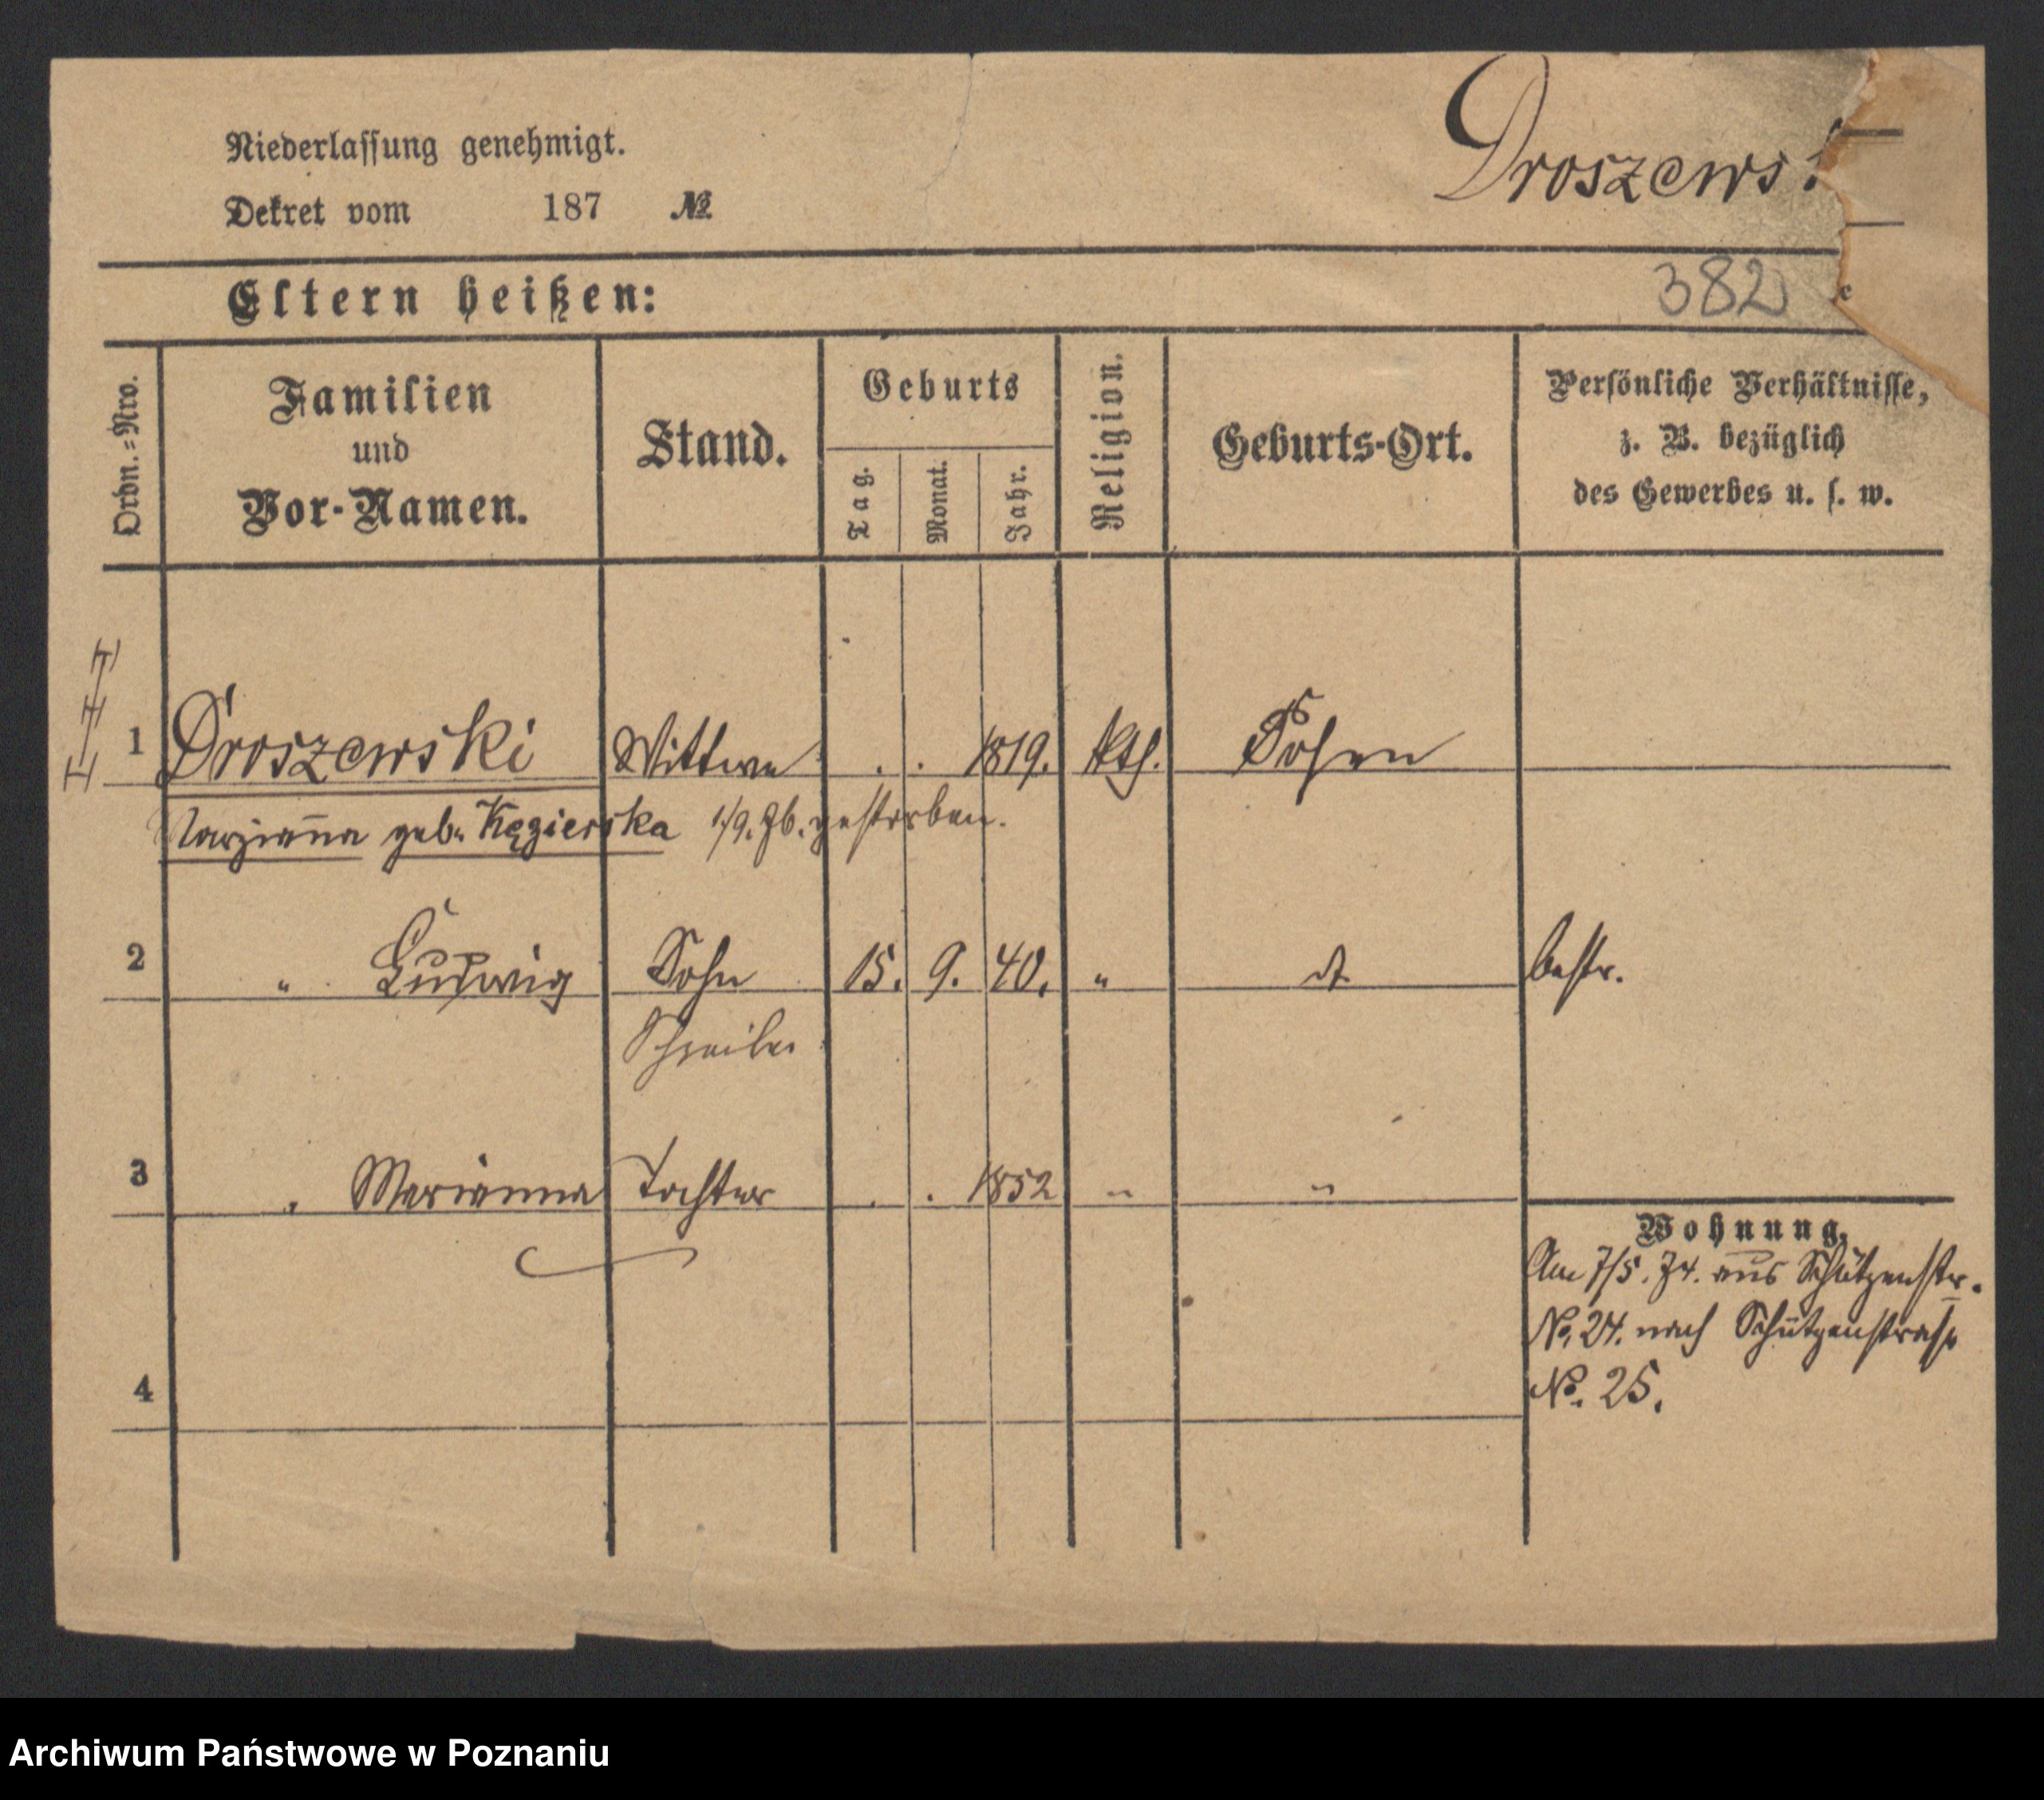 Niederlassung genehmigt.
Droszews
Dekret vom 187 №
Eltern heißen:
382
Ordn.-Nro.
Familien
und
Vor-Namen.
Stand.
Geburts
Tag.
Monat.
Jahr.
Religion.
Geburts-Ort.
Persönliche Verhältnisse,
z. B. bezüglich
des Gewerbes u. s. w.
1 Droszewski Wittwe . . 1819. kth. Posen
geb. Kęgierska 1/9. 76. gestorben.
2 " Ludwig Sohn 15. 9. 40. " dt. bestr.
Schreiber
3 " Marianna Tochter . . 1852 " "
Wohnung.
Am 7/5. 74. aus Schützenstr.
No. 24. nach Schützenstraße
No. 25.
4
Archiwum Państwowe w Poznaniu